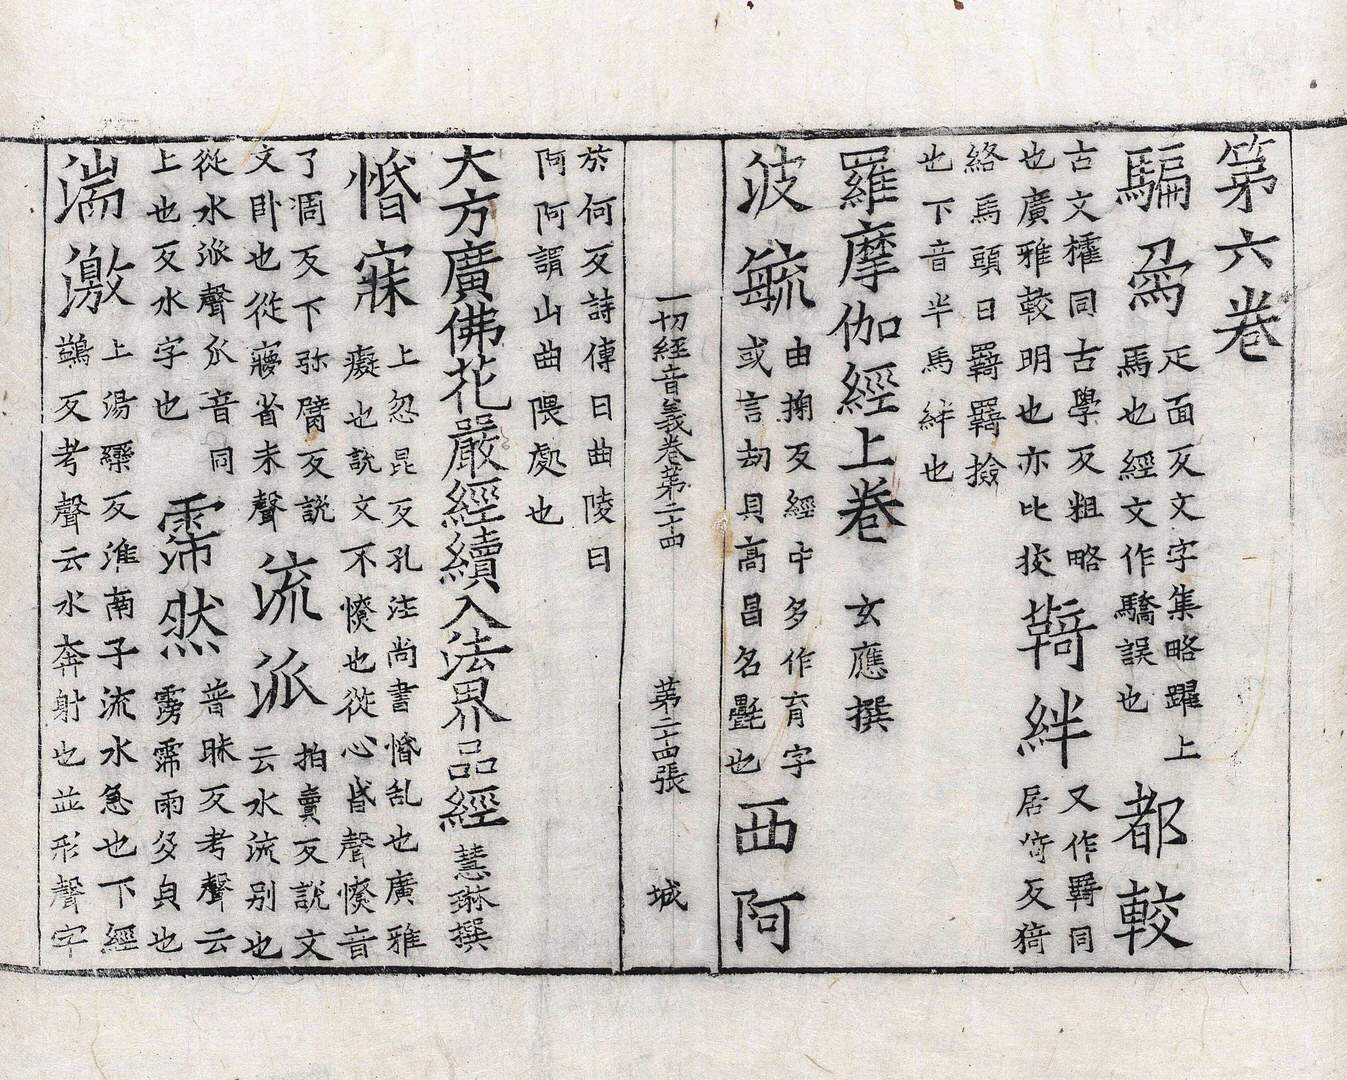 第六卷
騗
疋面反文字集略躍上
馬也經文作驕誤也
都較
古文㩁同古學反粗略
也廣雅較明也亦比挍
䩭絆
又作羇同
居反猗
絡馬頭曰羇羇撿
也下音半馬絆也
羅摩伽經上卷 玄應撰
波毓
由掬反經中多作育字
或言劫貝髙昌名氎也
西阿
一切經音義卷第二十四 第二十四張 城
於何反詩傳曰曲陵曰
阿阿謂山曲隈處也
大方廣佛花嚴經續入法界品經 慧琳撰
惛寐
上忽昆反孔注尚書惛乱也廣雅
癡也說文不憭也從心昏聲憭音
了凋反下弥臂反說
文卧也從㝱省未聲
流派
拍賣反說文
云水流别也
從水𠂢聲𠂢音同
上也反水字也
霈然
普昧反考聲云
霶霈雨多皃也
湍激
上湯欒反淮南子流水急也下經
鷁反考聲云水奔射也並形聲字